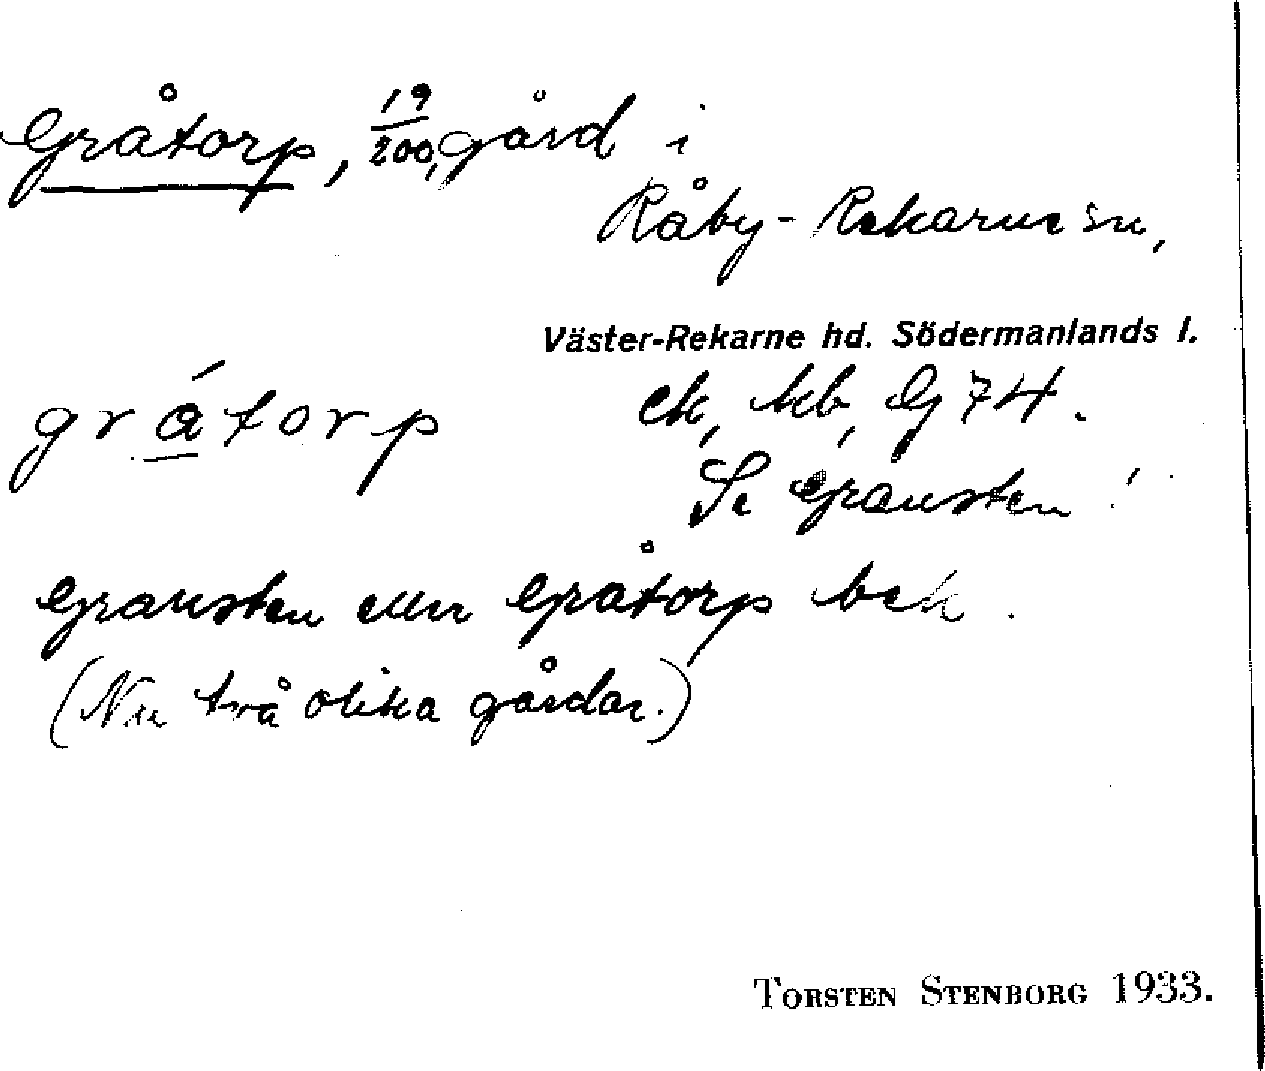 Gråtorp, 19/200, gård i
Råby-Rekarne sn,
Väster-Rekarne hd. Södermanlands l.
grátorp
ek, kb, G 74.
Se Gransten!
Gransten eller Gråtorp bek.
(Nu två olika gårdar.)
TORSTEN STENBORG 1933.